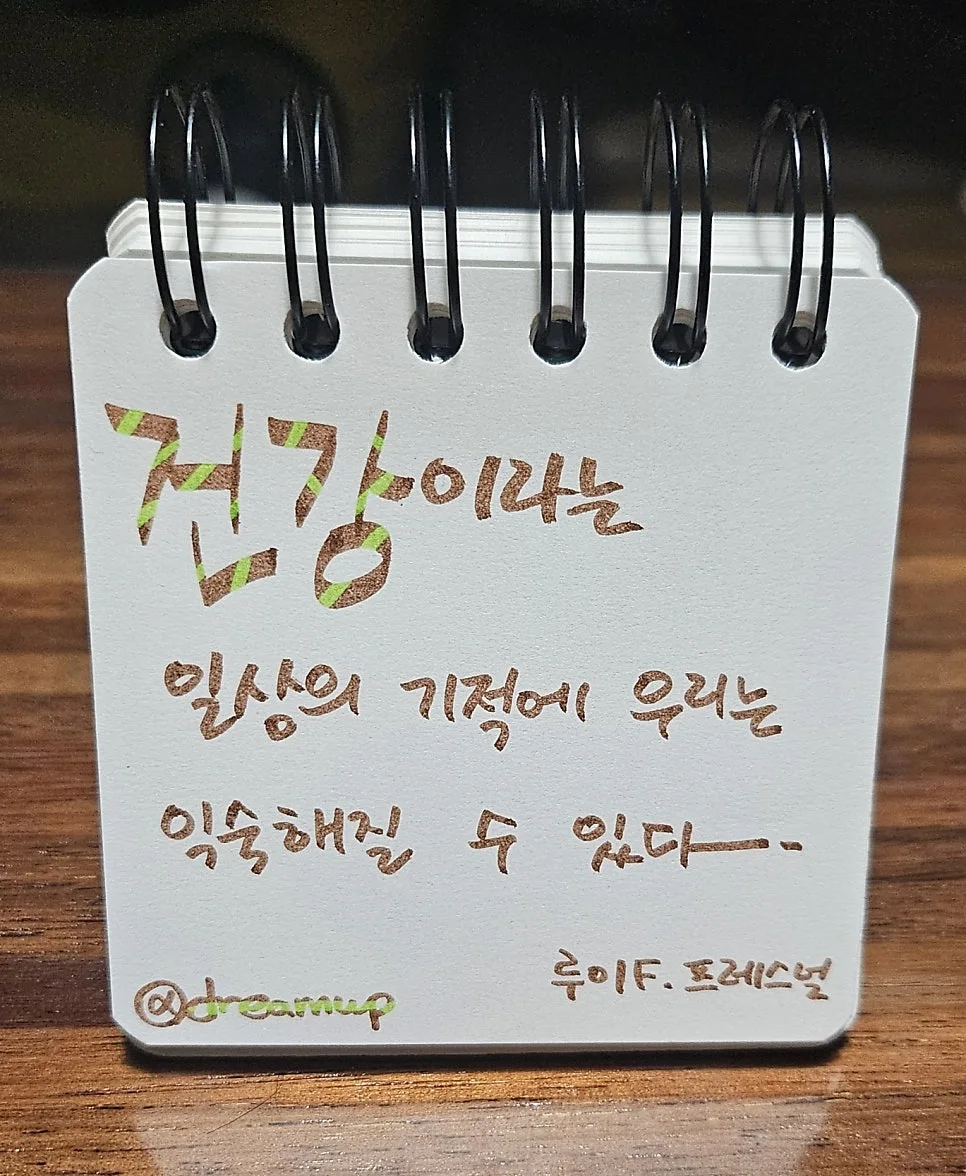 건강이라는
일상의 기적에 우리는
익숙해질 수 있다.
루이F. 프레스널
@dreamup